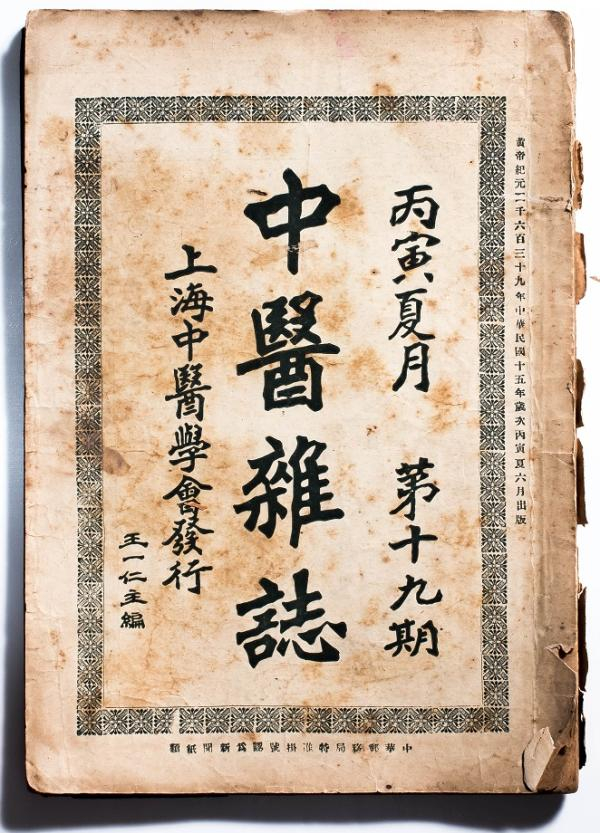 黃帝紀元二千六百三十九年中華民國十五年歲次丙寅夏六月出版
丙寅夏月 第十九期
中醫雜誌
上海中醫學會發行
王一仁主編
中華郵務局特准掛號認爲新聞紙類